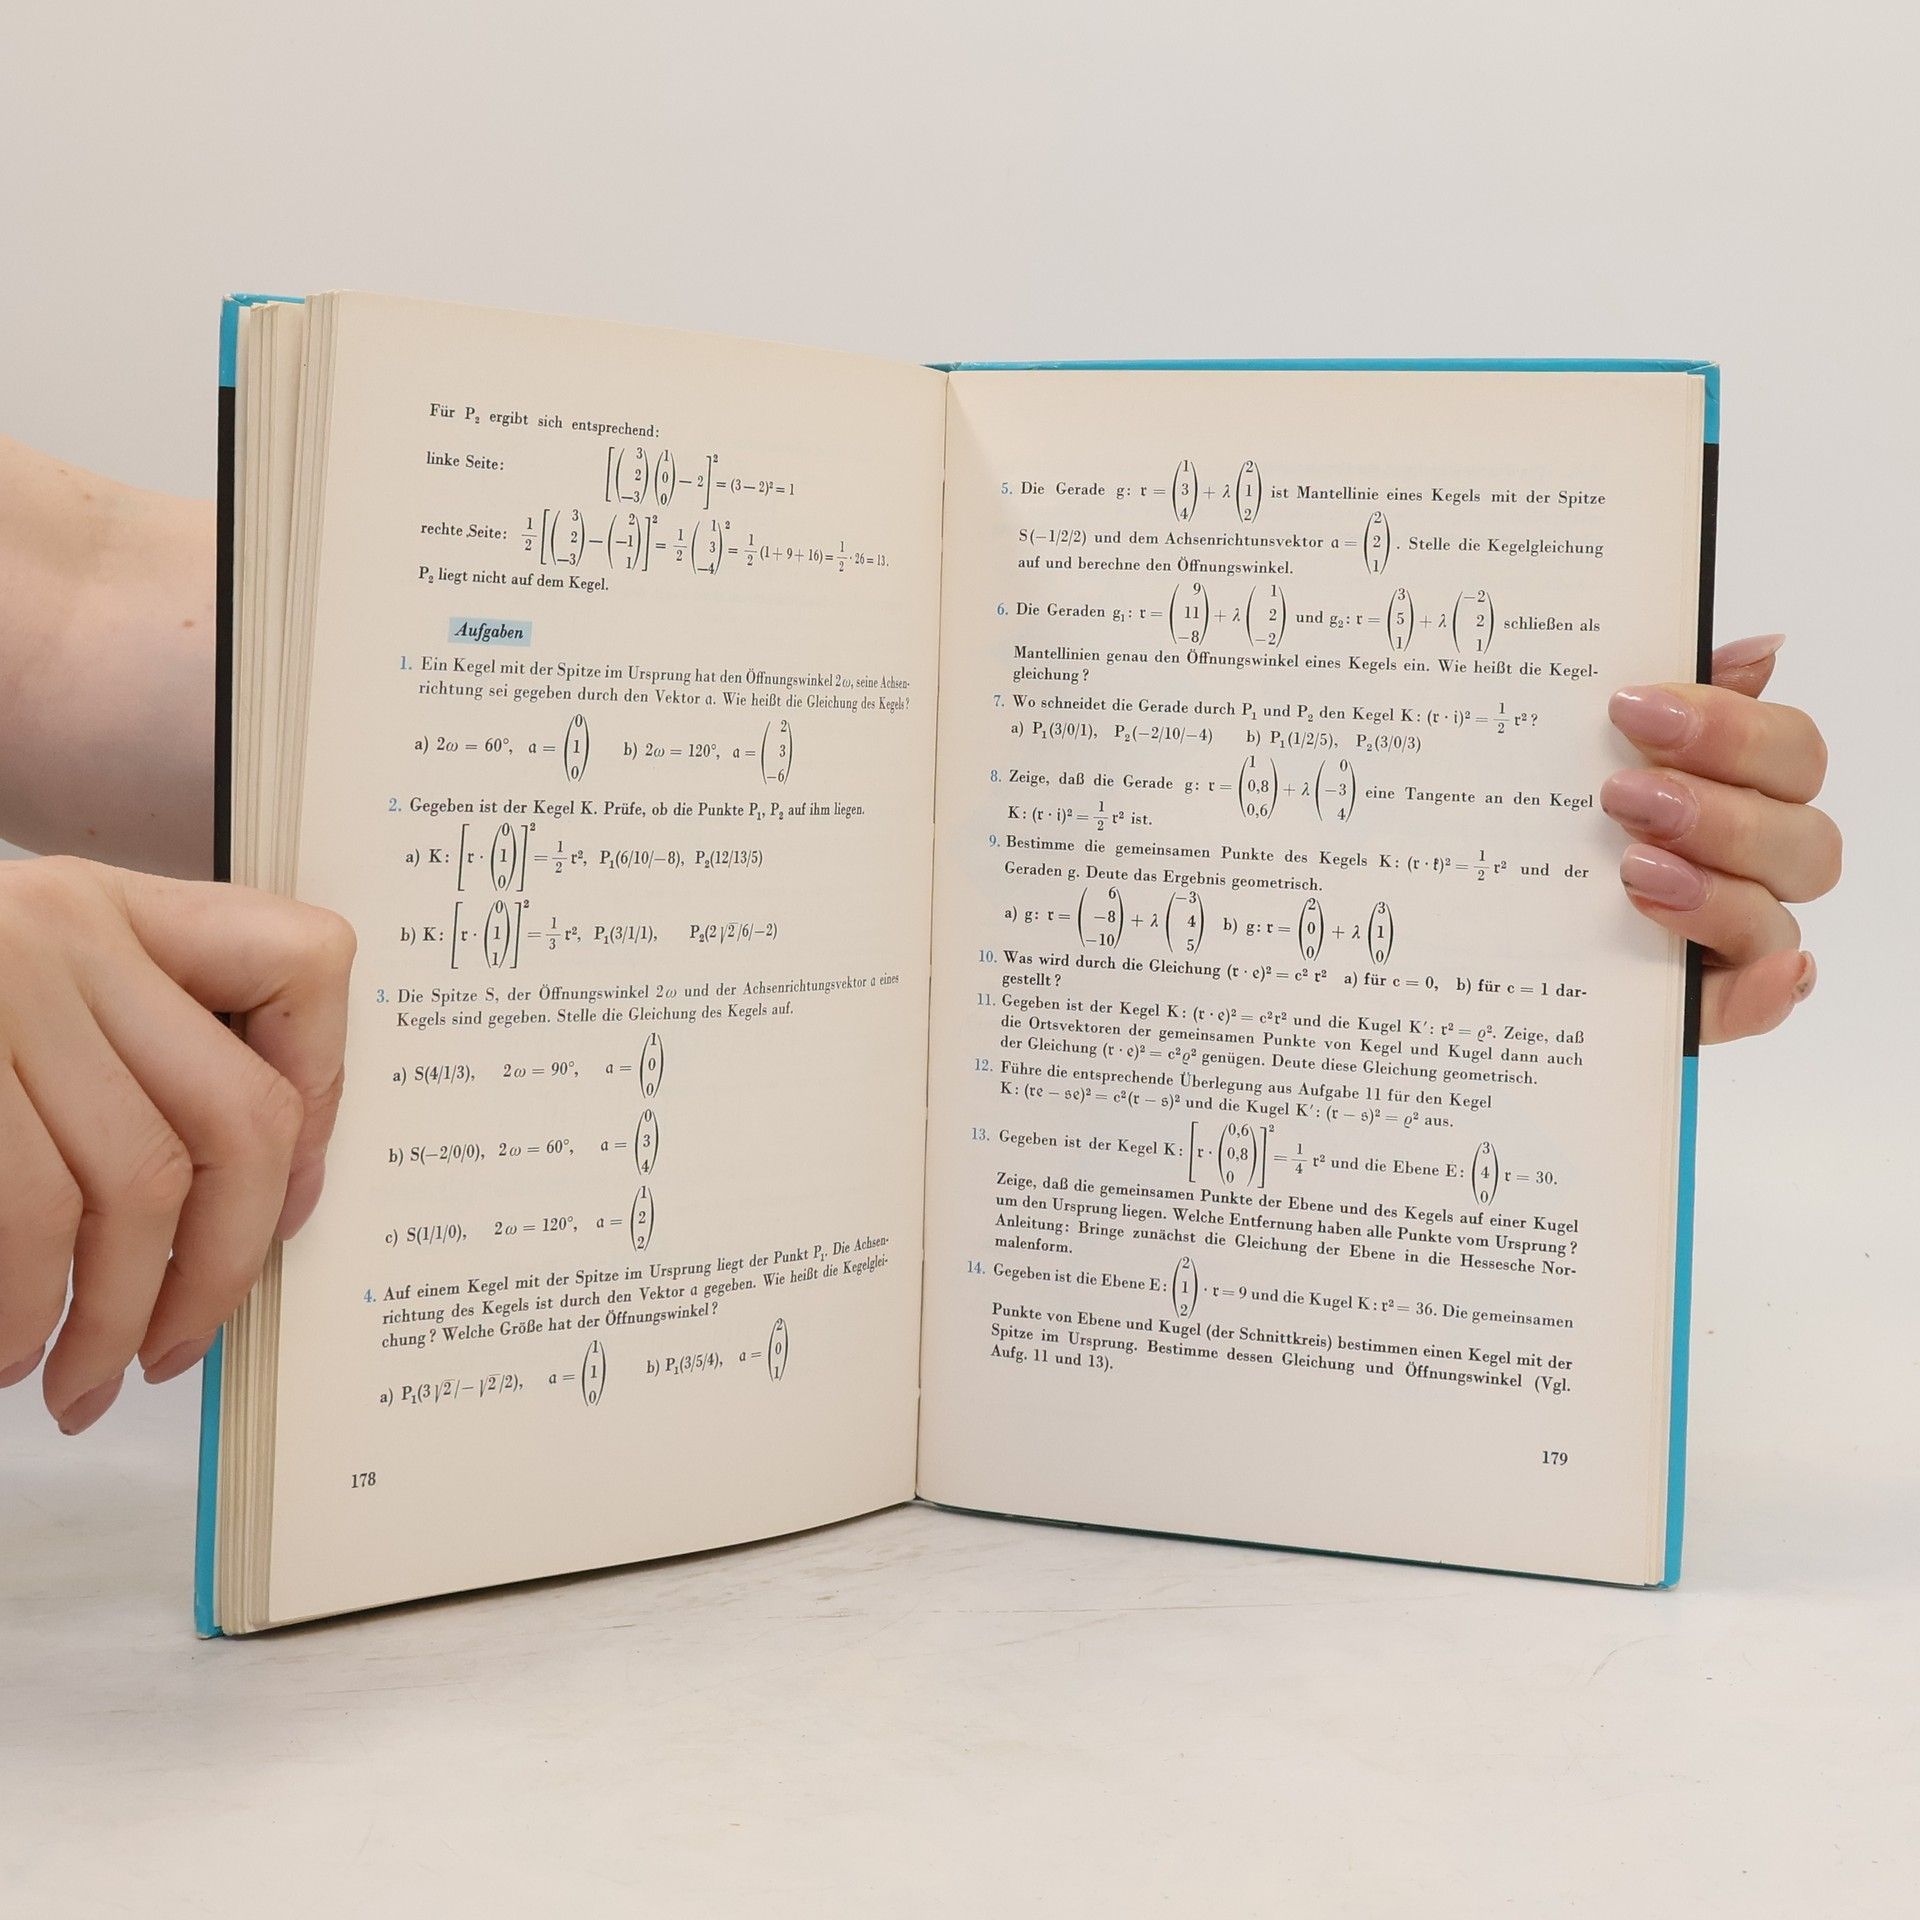 Für P₂ ergibt sich entsprechend:
linke Seite: [(3 2 −3)(1 0 0) − 2]² = (3 − 2)² = 1
rechte Seite: 1/2 [(3 2 −3) − (2 −1 1)]² = 1/2 (1 3 −4)² = 1/2 (1 + 9 + 16) = 1/2 · 26 = 13.
P₂ liegt nicht auf dem Kegel.
Aufgaben
1. Ein Kegel mit der Spitze im Ursprung hat den Öffnungswinkel 2ω, seine Achsen-
richtung sei gegeben durch den Vektor a. Wie heißt die Gleichung des Kegels?
a) 2ω = 60°, a = (0 1 0) b) 2ω = 120°, a = (2 3 −6)
2. Gegeben ist der Kegel K. Prüfe, ob die Punkte P₁, P₂ auf ihm liegen.
a) K: [r · (0 1 0)]² = 1/2 r², P₁(6/10/−8), P₂(12/13/5)
b) K: [r · (0 1 1)]² = 1/3 r², P₁(3/1/1), P₂(2√2/6/−2)
3. Die Spitze S, der Öffnungswinkel 2ω und der Achsenrichtungsvektor a eines
Kegels sind gegeben. Stelle die Gleichung des Kegels auf.
a) S(4/1/3), 2ω = 90°, a = (1 0 0)
b) S(−2/0/0), 2ω = 60°, a = (0 3 4)
c) S(1/1/0), 2ω = 120°, a = (1 2 2)
4. Auf einem Kegel mit der Spitze im Ursprung liegt der Punkt P₁. Die Achsen-
richtung des Kegels ist durch den Vektor a gegeben. Wie heißt die Kegelglei-
chung? Welche Größe hat der Öffnungswinkel?
a) P₁(3√2/−√2/2), a = (1 1 0) b) P₁(3/5/4), a = (2 0 1)
178
5. Die Gerade g: r = (1 3 4) + λ (2 1 2) ist Mantellinie eines Kegels mit der Spitze
S(−1/2/2) und dem Achsenrichtunsvektor a = (2 2 1). Stelle die Kegelgleichung
auf und berechne den Öffnungswinkel.
6. Die Geraden g₁: r = (9 11 −8) + λ (1 2 −2) und g₂: r = (3 5 1) + λ (−2 2 1) schließen als
Mantellinien genau den Öffnungswinkel eines Kegels ein. Wie heißt die Kegel-
gleichung?
7. Wo schneidet die Gerade durch P₁ und P₂ den Kegel K: (r · i)² = 1/2 r²?
a) P₁(3/0/1), P₂(−2/10/−4) b) P₁(1/2/5), P₂(3/0/3)
8. Zeige, daß die Gerade g: r = (1 0,8 0,6) + λ (0 −3 4) eine Tangente an den Kegel
K: (r · i)² = 1/2 r² ist.
9. Bestimme die gemeinsamen Punkte des Kegels K: (r · k)² = 1/2 r² und der
Geraden g. Deute das Ergebnis geometrisch.
a) g: r = (6 −8 −10) + λ (−3 4 5) b) g: r = (2 0 0) + λ (3 1 0)
10. Was wird durch die Gleichung (r · e)² = c² r² a) für c = 0, b) für c = 1 dar-
gestellt?
11. Gegeben ist der Kegel K: (r · e)² = c²r² und die Kugel K′: r² = ϱ². Zeige, daß
die Ortsvektoren der gemeinsamen Punkte von Kegel und Kugel dann auch
der Gleichung (r · e)² = c²ϱ² genügen. Deute diese Gleichung geometrisch.
12. Führe die entsprechende Überlegung aus Aufgabe 11 für den Kegel
K: (re − se)² = c²(r − s)² und die Kugel K′: (r − s)² = ϱ² aus.
13. Gegeben ist der Kegel K: [r · (0,6 0,8 0)]² = 1/4 r² und die Ebene E: (3 4 0) r = 30.
Zeige, daß die gemeinsamen Punkte der Ebene und des Kegels auf einer Kugel
um den Ursprung liegen. Welche Entfernung haben alle Punkte vom Ursprung?
Anleitung: Bringe zunächst die Gleichung der Ebene in die Hessesche Nor-
malenform.
14. Gegeben ist die Ebene E: (2 1 2) · r = 9 und die Kugel K: r² = 36. Die gemeinsamen
Punkte von Ebene und Kugel (der Schnittkreis) bestimmen einen Kegel mit der
Spitze im Ursprung. Bestimme dessen Gleichung und Öffnungswinkel (Vgl.
Aufg. 11 und 13).
179